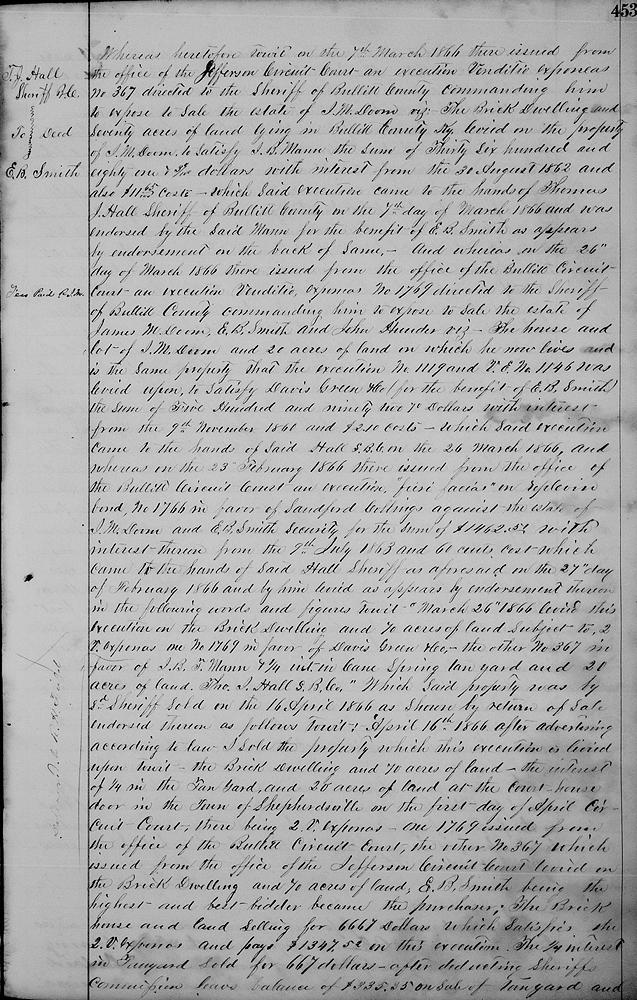 453
T. J. Hall
Sheriff B.C.
To Deed
E. B. Smith
Whereas heretofore towit on the 7th March 1866 there issued from
the office of the Jefferson Circuit Court an execution Venditio exponas
No 367 directed to the Sheriff of Bullitt County commanding him
to expose to Sale the estate of J. M. Doom viz: The Brick Dwelling and
Seventy acres of land lying in Bullitt County Ky. levied on the property
of J. M. Doom, to Satisfy J. B. Mann the Sum of Thirty Six hundred and
eighty one dollars with interest from the 30 August 1862 and
also Costs — which Said execution came to the hands of Thomas
J. Hall Sheriff of Bullitt County on the 7th day of March 1866 and was
endorsed by the Said Mann for the benefit of E. B. Smith as appears
by endorsement on the back of Same, — And whereas on the 26"
day of March 1866 there issued from the office of the Bullitt Circuit
Fees Paid
Court an execution Venditio, exponas No 1769 directed to the Sheriff
of Bullitt County commanding him to expose to Sale the estate of
James M. Doom, E. B. Smith and John viz — The house and
lot of J. M. Doom and 20 acres of land on which he now lives and
is the Same property that the execution No 1119 and V. E. No 1146 was
levied upon, to Satisfy Davis Green &Co (for the benefit of E. B. Smith)
the Sum of Five Hundred and ninety two Dollars with interest
from the 9th November 1860 and $2.10 costs — which Said execution
came to the hands of Said Hall S.B.C. on the 26 March 1866, And
whereas on the 23" February 1866 there issued from the office of
the Bullitt Circuit Court an execution, "fieri facias" on replevin
bond, No 1766 in favor of Sandford against the estate of
J. M. Doom and E. B. Smith Security, for the Sum of $1462.52 with
interest thereon from the 9th July 1863 and 60 cents cost which
came to the hands of Said Hall Sheriff as aforesaid on the 27" day
of February 1866 and by him levied as appears by endorsement thereon
in the following words and figures towit "March 26" 1866 levied this
execution on the Brick Dwelling and 70 acres of land Subject to, 2
V. exponas one No 1769 in favor of Davis Green &Co, — the other No 367 in
favor of J. B. T. Mann & 1/4 int in Cane Spring tan yard and 20
acres of land. Tho. J. Hall S. B. Co," Which Said property was by
Sd Sheriff Sold on the 16 April 1866 as Shown by return of Sale
endorsed thereon as follows towit: "April 16th 1866 after advertising
according to law I Sold the property which this execution is levied
upon towit — the Brick Dwelling and 70 acres of land — the interest
of 1/4 in the Tan Yard, and 20 acres of land at the Court-house
door in the Town of Shepherdsville on the first day of April Cir-
cuit Court, there being 2 V. exponas — one 1769 issued from
the office of the Bullitt Circuit Court, the other No 367 which
issued from the office of the Jefferson Circuit Court levied on
the Brick Dwelling and 70 acres of land, E. B. Smith being the
highest and best bidder became the purchaser; The Brick
house and land Selling for 6667 Dollars which Satisfies the
2 V. exponas and pays $1347.52 on this execution. The 1/4 interest
in Tanyard Sold for 667 dollars — after deducting Sheriffs
commission leaves balance of $335.25 on Sale of Tanyard and